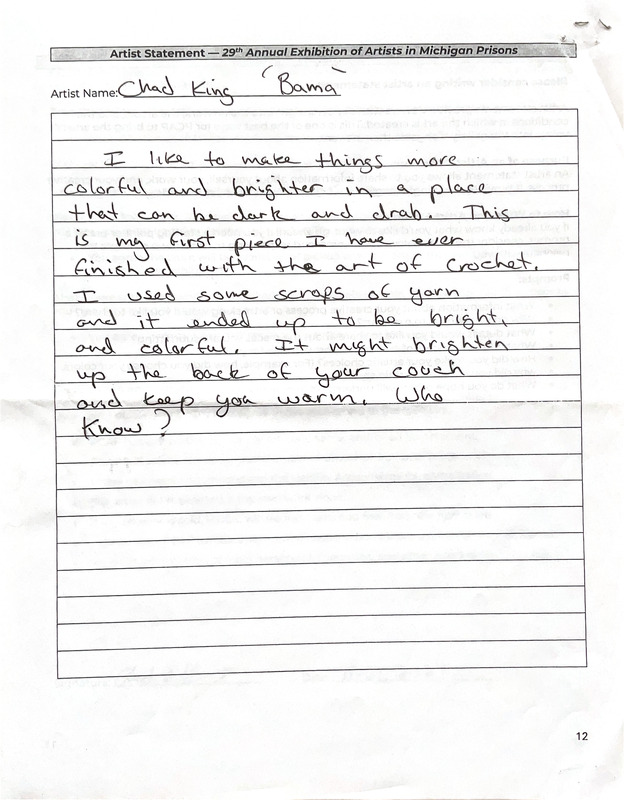 Artist Statement — 29th Annual Exhibition of Artists in Michigan Prisons
Artist Name: Chad King "Bama"
I like to make things more
colorful and brighter in a place
that can be dark and drab. This
is my first piece I have ever
finished with the art of Crochet.
I used some scraps of yarn
and it ended up to be bright,
and colorful. It might brighten
up the back of your couch
and keep you warm. Who
Know?
12